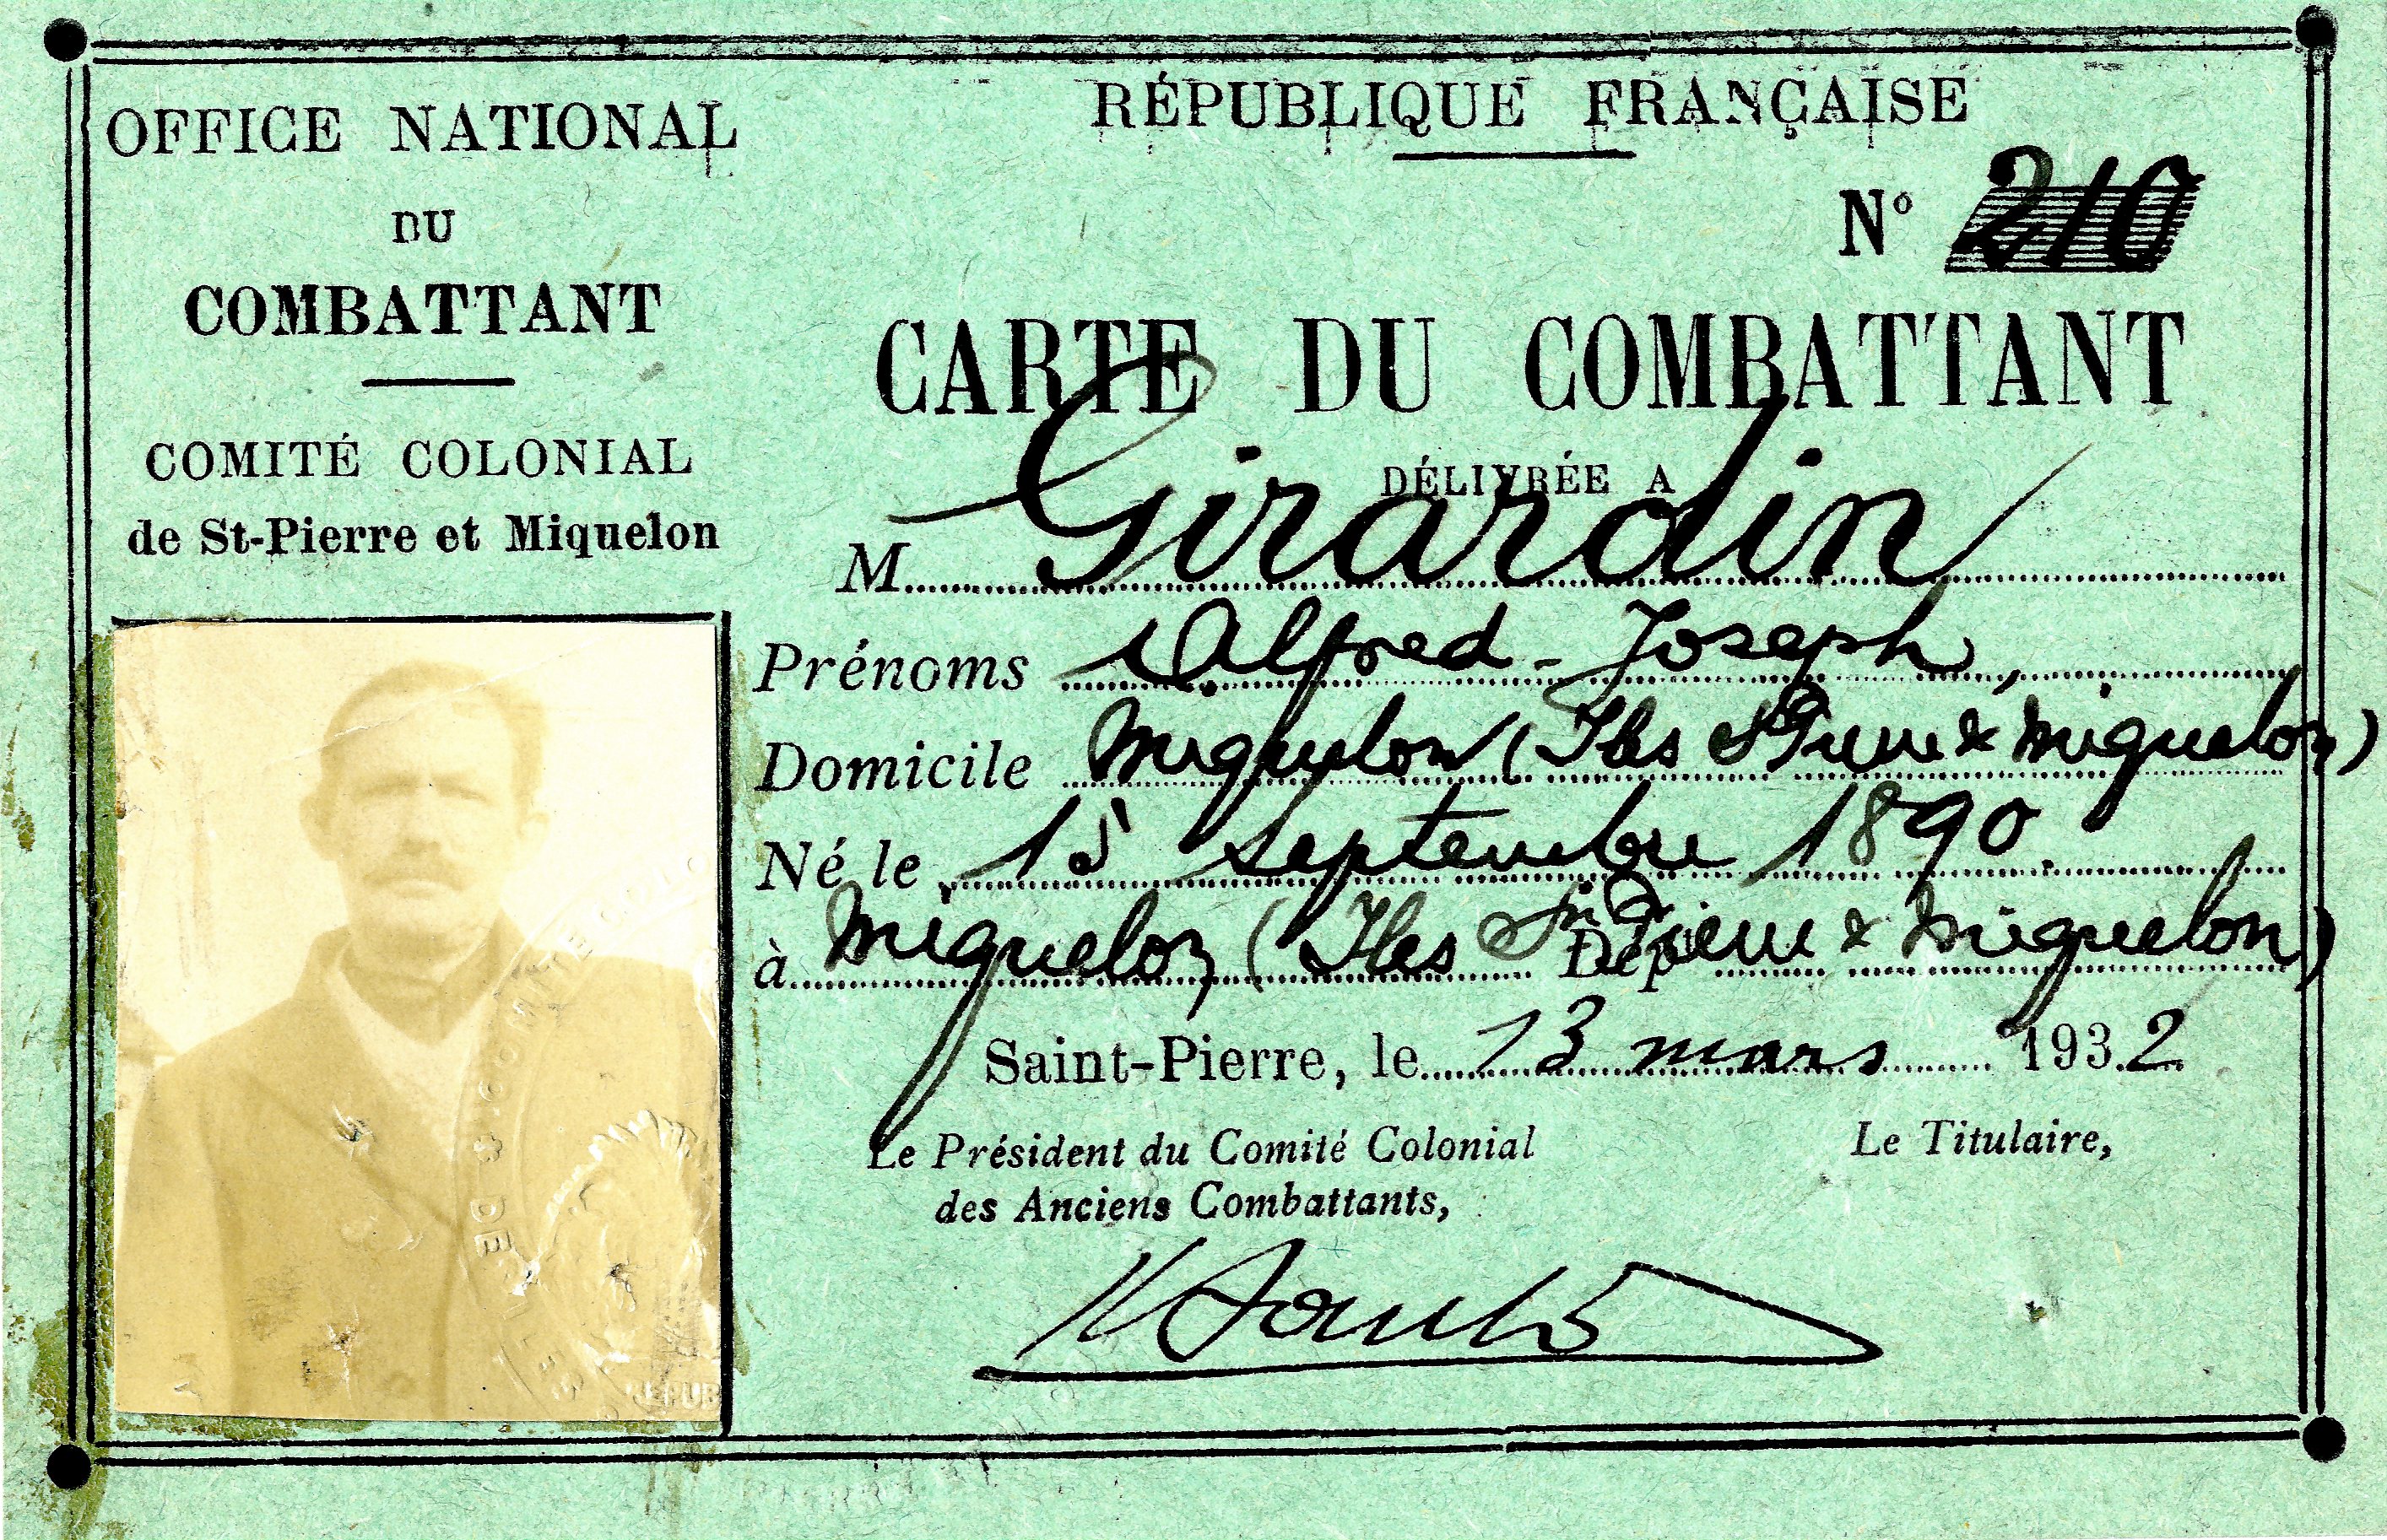 OFFICE NATIONAL
DU
COMBATTANT
COMITÉ COLONIAL
de St-Pierre et Miquelon
RÉPUBLIQUE FRANÇAISE
N° 210
CARTE DU COMBATTANT
DÉLIVRÉE A
M Girardin
Prénoms Alfred-Joseph,
Domicile Miquelon (Iles St Pierre & Miquelon)
Né le 15 septembre 1890
à Miquelon (Iles St Pierre & Miquelon) Dép
Saint-Pierre, le 13 mars 1932
Le Président du Comité Colonial
des Anciens Combattants,
Le Titulaire,